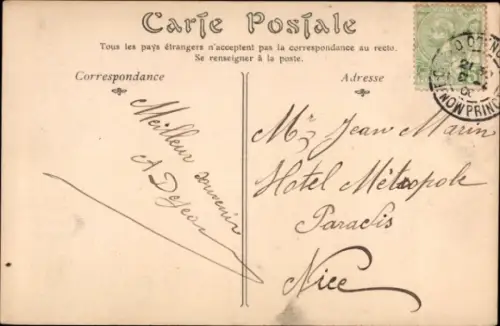 Carte Postale
Tous les pays étrangers n'acceptent pas la correspondance au recto.
Se renseigner à la poste.
Correspondance
Adresse
Meilleur souvenir
Mr Jean Marin
Hotel Métropole
Paradis
Nice